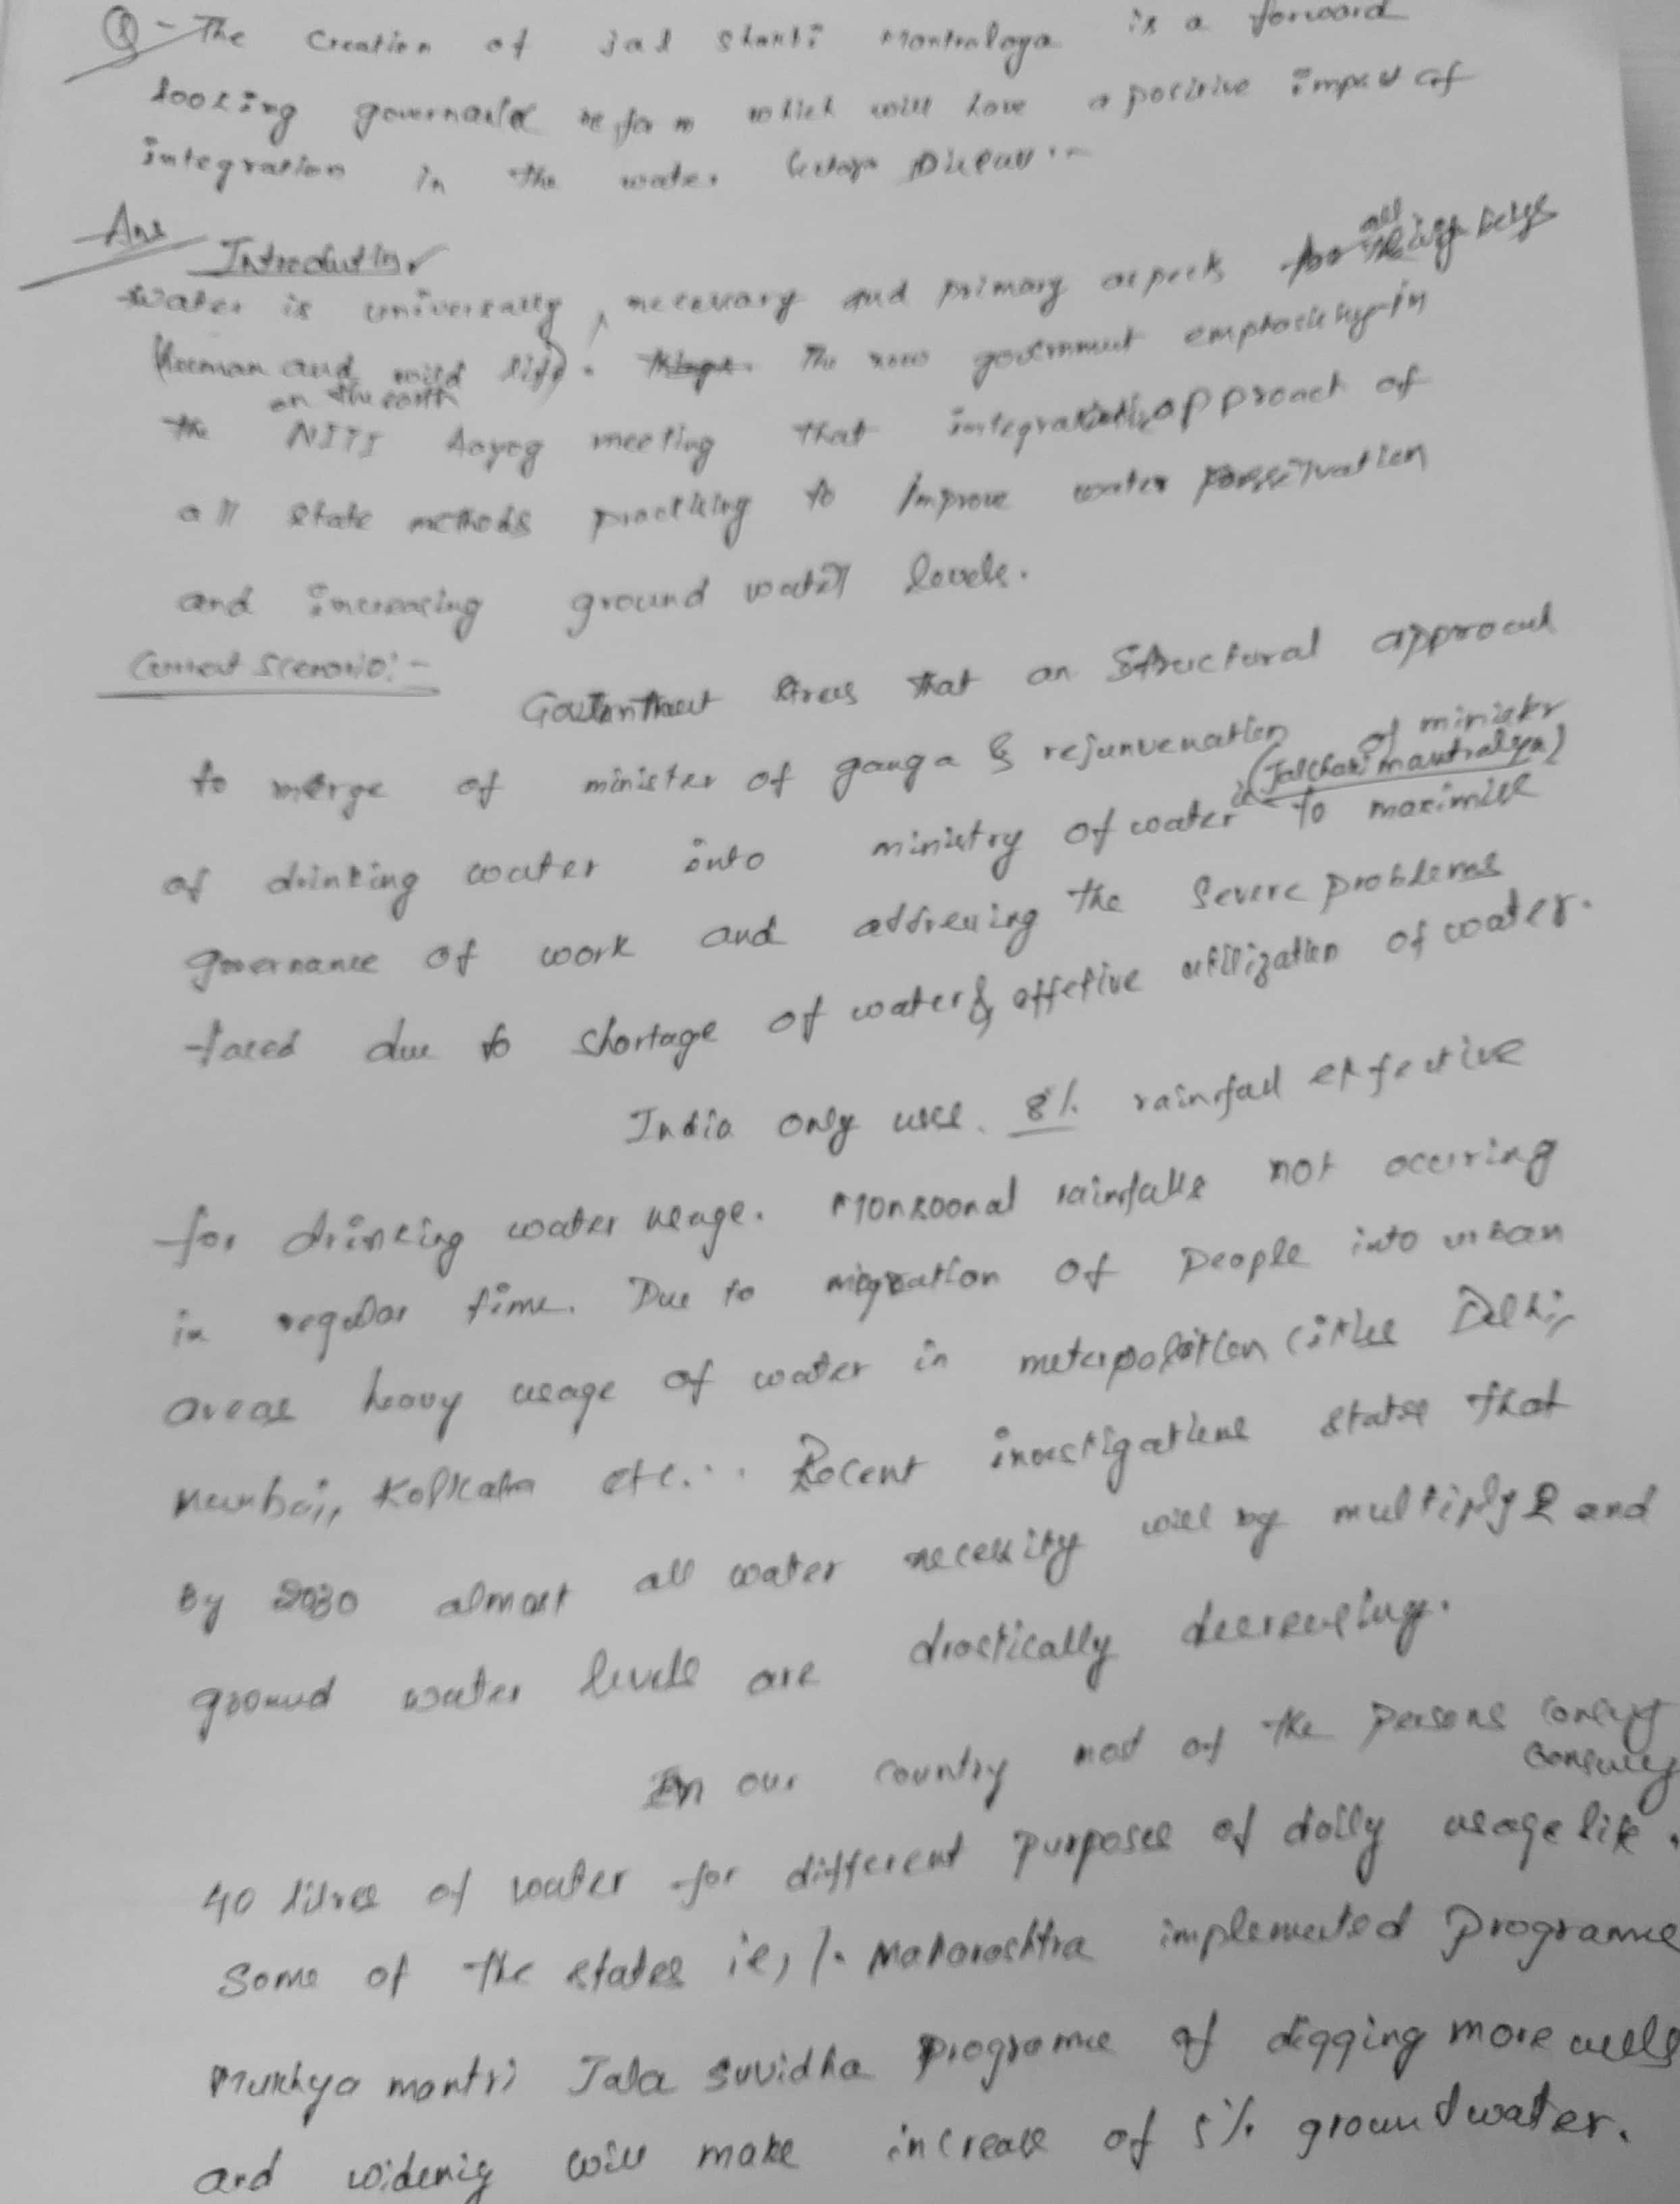 Q - The creation of jal shakti Mantralaya is a forward
looking governance reform which will have a positive impact of
integration in the water. Discuss :-
Ans
Introduction
Water is universally, necessary and primary aspects for all living beings
(human and wild life). The new government emphasising in
on the earth
the NITI Aayog meeting that integrated approach of
all state methods practicing to improve water
and increasing ground water levels.
Current Scenario:-
Government stress that an Structural approach
to merge of minister of ganga & rejunvenation of ministr
(Jalshakti mantralya)
of drinking water into ministry of water to maximise
governance of work and addressing the severe problems
faced due to shortage of water & effetive utilization of water.
India only uses 8% rainfall effective
for drinking water usage. Monsoonal rainfalls not occuring
in regular time. Due to migration of people into urban
areas heavy usage of water in meterpolitan cities Delhi,
Mumbai, Kolkata etc... Recent investigations states that
By 2030 almost all water necessity will by multiply 2 and
ground water levels are drastically decreasing.
In our country most of the persons
consuming
40 litres of water for different purposes of daily usage life.
Some of the states ie, 1. Maharashtra implemented programme
Mukhya mantri Jala suvidha programe of digging more wells
and widenig will make increase of 5% groundwater.